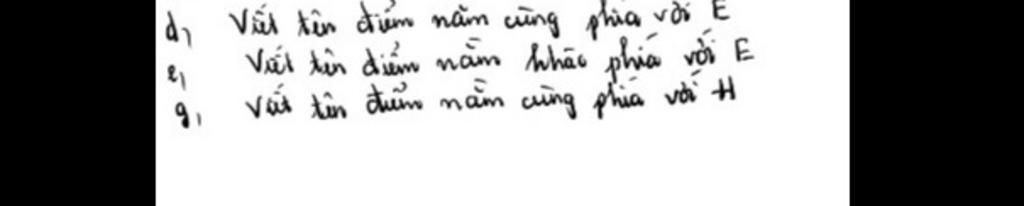 d, Viết tên điểm nằm cùng phía với E
e, Viết tên điểm nằm khác phía với E
g, Viết tên điểm nằm cùng phía với H